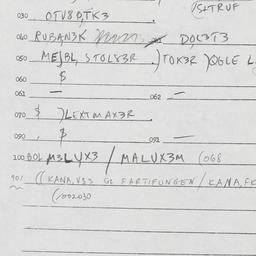 /SLTRUF
030 OTV8O,TK3
040 RUBAN3K DOL3T3
050 ME[BL STOL83R .)TOK3R )OGLE L
060 $
061 — 062 —
070 $ )LEXTMAX3R
090 $ 091 —
100 BOL M3LUX3 / MALUX3M (068
101 ((KANA,VS3 GL FARTIFUNGEN / KANA,FK
(/002030